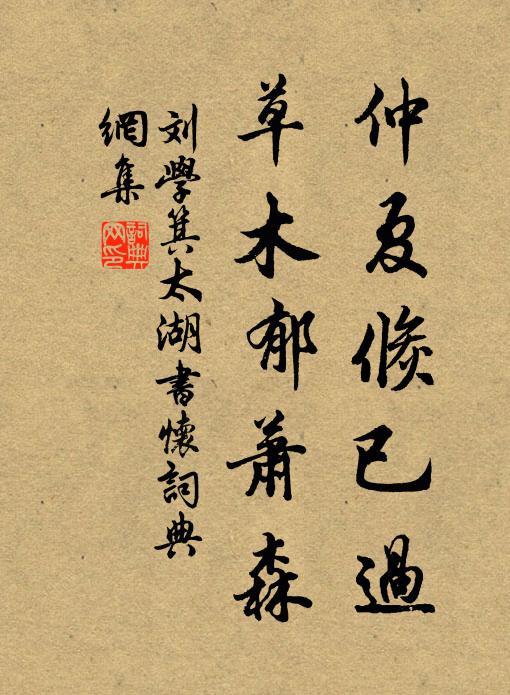 仲夏倏已過
草木郁蕭森
刘學箕太湖書懷詞典
網集
詞典網印